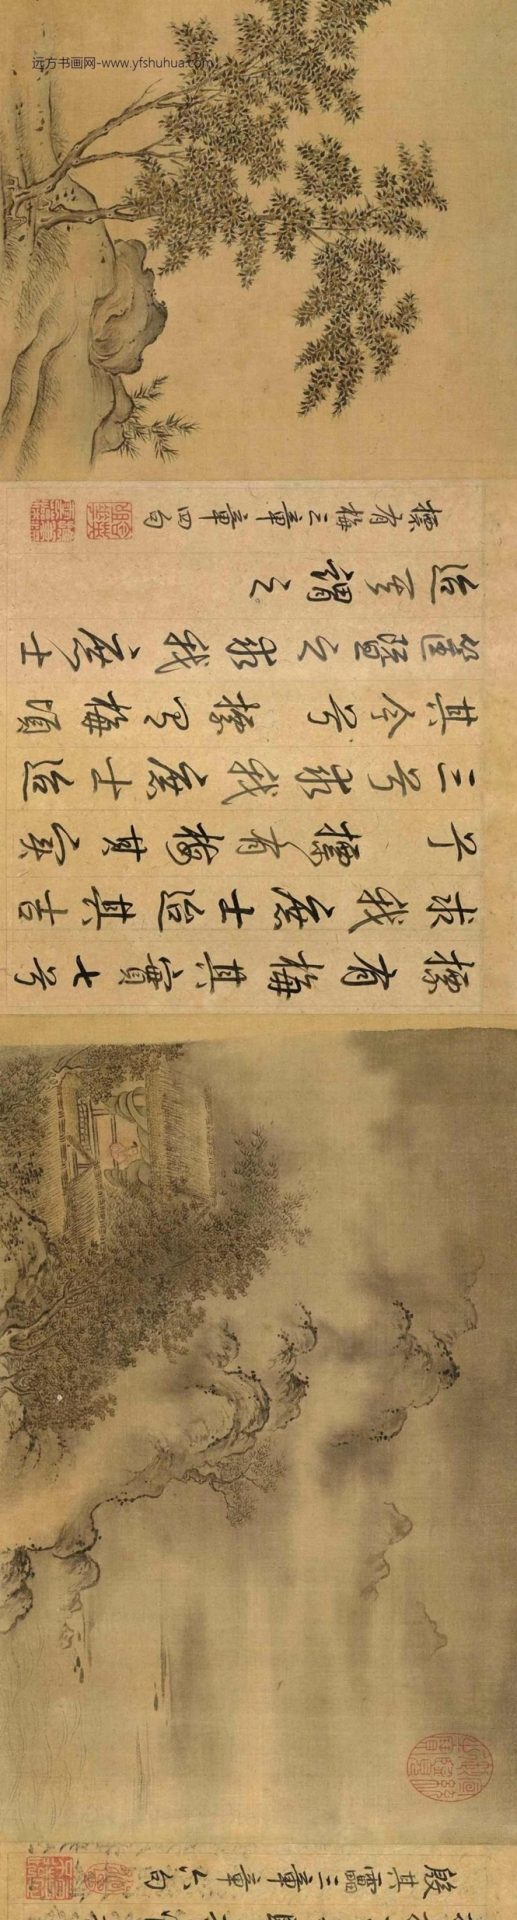 殷其靁三章章六句
摽有梅其實七兮
求我庶士迨其吉
兮 摽有梅其實
三兮求我庶士迨
其今兮 摽有梅頃
筐塈之求我庶士
迨其謂之
摽有梅三章章四句
远方书画网-www.yfshuhua.com